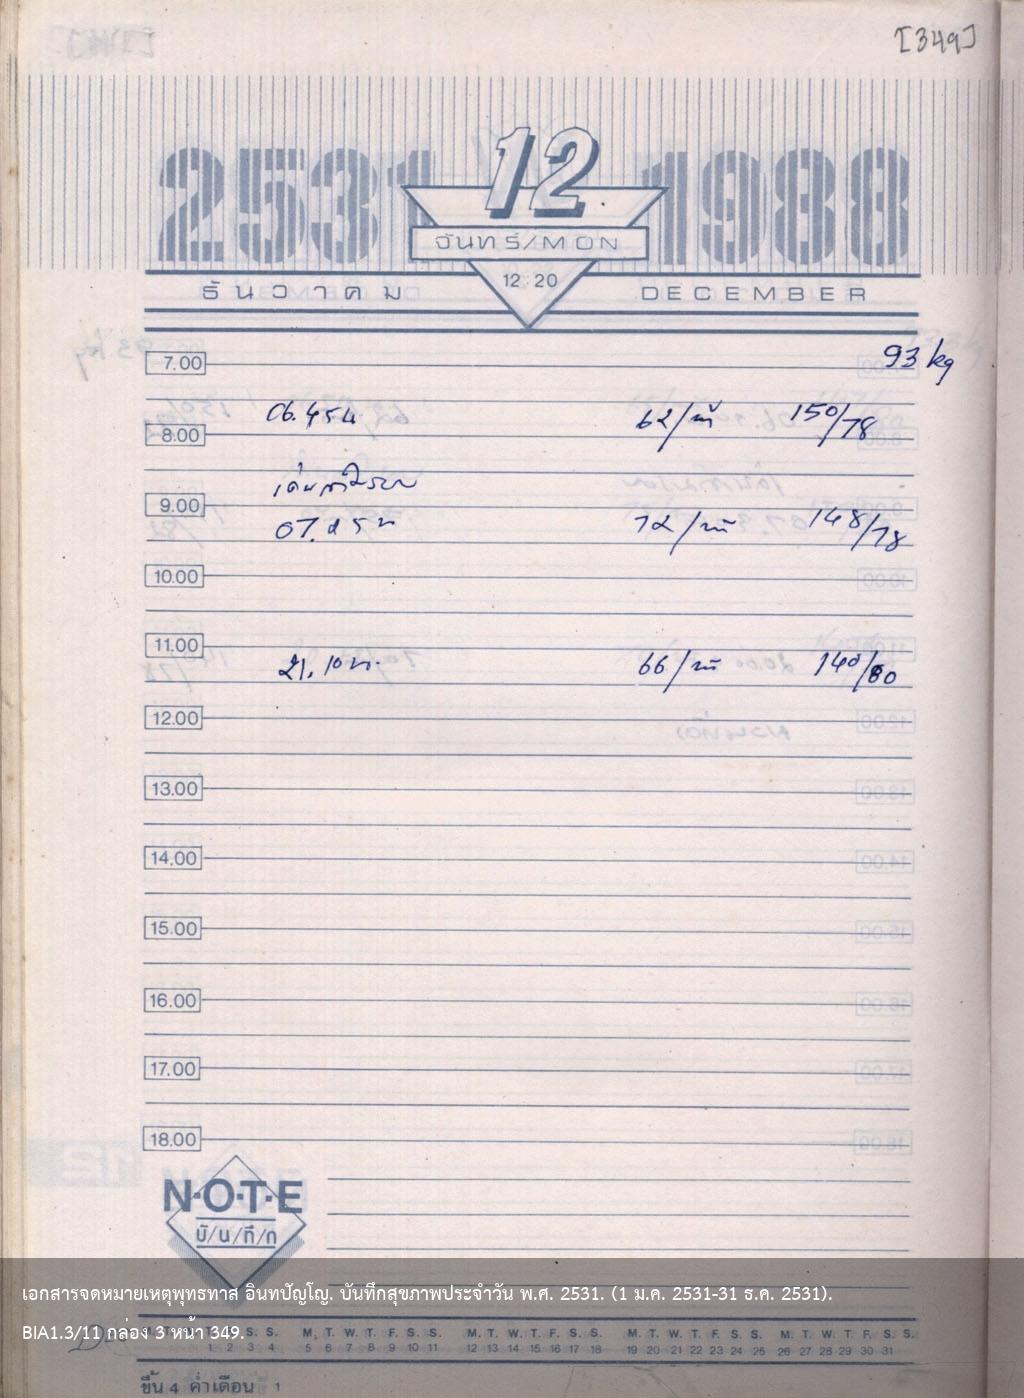 [349]
2531 12 1988
จันทร์/MON
12 20
ธันวาคม DECEMBER
7.00 93 kg
62/นาที 150/78
8.00
9.00
72/นาที 148/78
10.00
11.00
21.10 น. 66/นาที 140/80
12.00
13.00
14.00
15.00
16.00
17.00
18.00
N·O·T·E
บั/น/ทึ/ก
เอกสารจดหมายเหตุพุทธทาส อินทปัญโญ. บันทึกสุขภาพประจำวัน พ.ศ. 2531. (1 ม.ค. 2531-31 ธ.ค. 2531).
BIA1.3/11 กล่อง 3 หน้า 349.
S. S. M. T. W. T. F. S. S. M. T. W. T. F. S. S. M. T. W. T. F. S. S. M. T. W. T. F. S. S.
1 2 3 4 5 6 7 8 9 10 11 12 13 14 15 16 17 18 19 20 21 22 23 24 25 26 27 28 29 30 31
ขึ้น 4 ค่ำเดือน 1